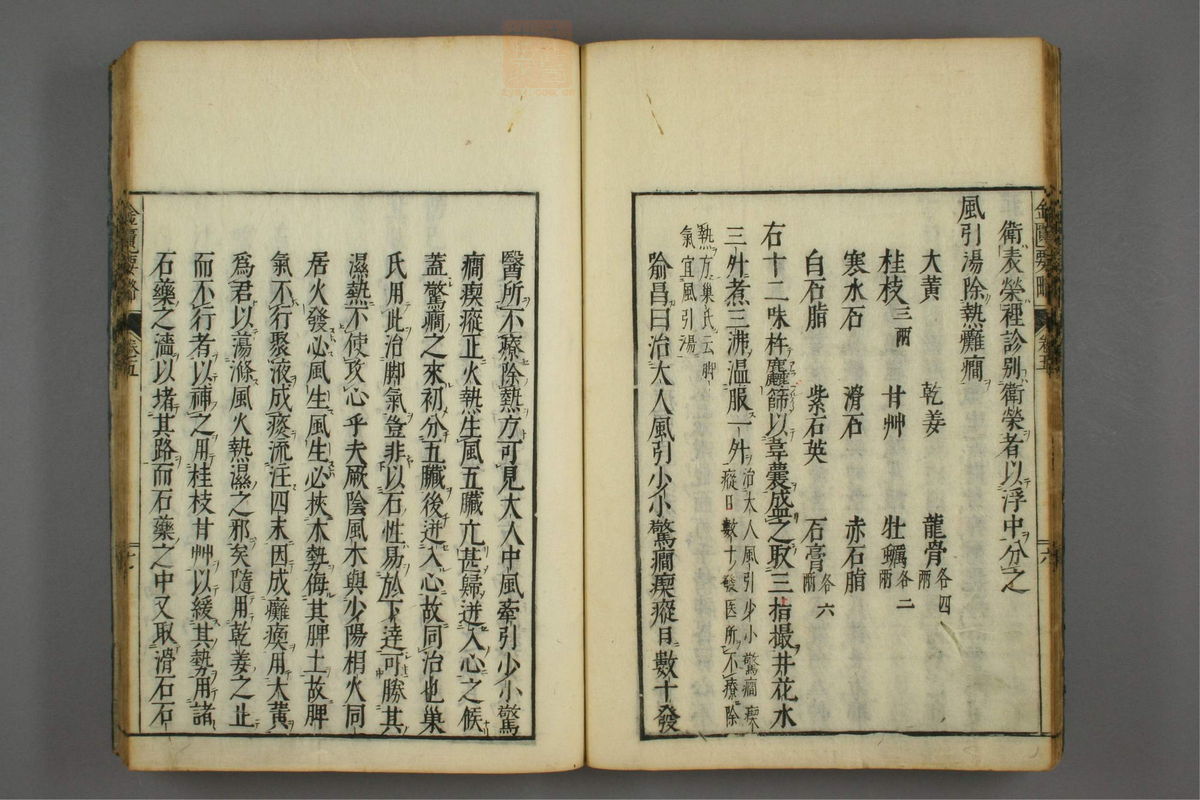 衛表榮裡診別衛榮者以浮中分之
風引湯除熱癱癇
大黃 乾姜 龍骨各四兩
桂枝三兩 甘艸 牡蠣各二兩
寒水石 滑石 赤石脂
白石脂 紫石英 石膏各六兩
右十二味杵麤篩以韋囊盛之取三指撮井花水
三升煮三沸温服一升治大人風引少小驚癇瘈瘲日數十發医所不療除
熱方巢氏云脚氣宜風引湯
喻昌曰治大人風引少小驚癇瘈瘲日數十發
醫所不療除熱方可見大人中風牽引少小驚
癇瘈瘲正火熱生風五臟亢甚歸迸入心之候
蓋驚癇之來初分五臟後迸入心故同治也巢
氏用此治脚氣豈非以石性易於下達可勝其
濕熱不使攻心乎夫厥陰風木與少陽相火同
居火發必風生風生必挾木勢侮其脾土故脾
氣不行聚液成痰流注四末因成癱瘓用大黃
爲君以蕩滌風火熱濕之邪矣隨用乾姜之止
而不行者以神之用桂枝甘艸以緩其勢用諸
石藥之濇以堵其路而石藥之中又取滑石石
金匱要略
卷五
六
金匱要略
卷五
七